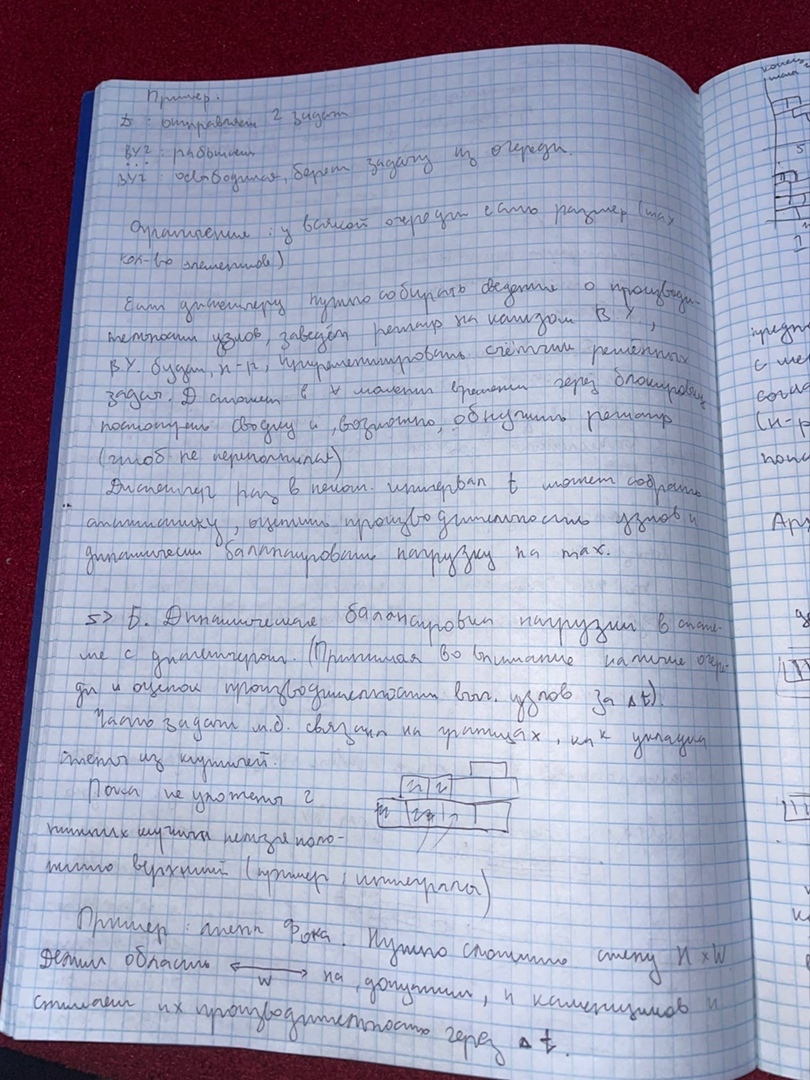 Пример.
Д : отправляет 2 задач
ВУ2 : работает
ВУ2 : освободился, берёт задачу из очереди.
Ограничение : у всякой очереди есть размер (max
кол-во элементов)
Если диспетчеру нужно собирать сведения о производи-
тельности узлов, заведём регистр на каждом ВУ,
ВУ будет, н-р, инкрементировать счётчик решённых
задач. Д сможет в ∀ момент времени через блокировку
посмотреть сводку и, возможно, обнулить регистр
(чтоб не переполнился)
Диспетчер раз в некот. интервал t может собрать
статистику, оценить производительность узлов и
динамически балансировать нагрузку на max.
5> Б. Динамическая балансировка нагрузки в систе-
ме с диспетчером. (Принимая во внимание наличие очере-
ди и оценок производительности выч. узлов за Δt).
Часто задачи м.б. связаны на границах, как укладка
стены из кирпичей.
Пока не уложены 2
нижних кирпича нельзя поло-
жить верхний (пример, интегралы)
Пример : стена Фока. Нужно сложить стену H×W
Делим область W на, допустим, n каменщиков и
считаем их производительность через Δt.